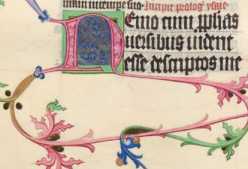 Incipit prolog9 ysaie
Nemo cum pphas
uersibus uiderit
esse descriptos me